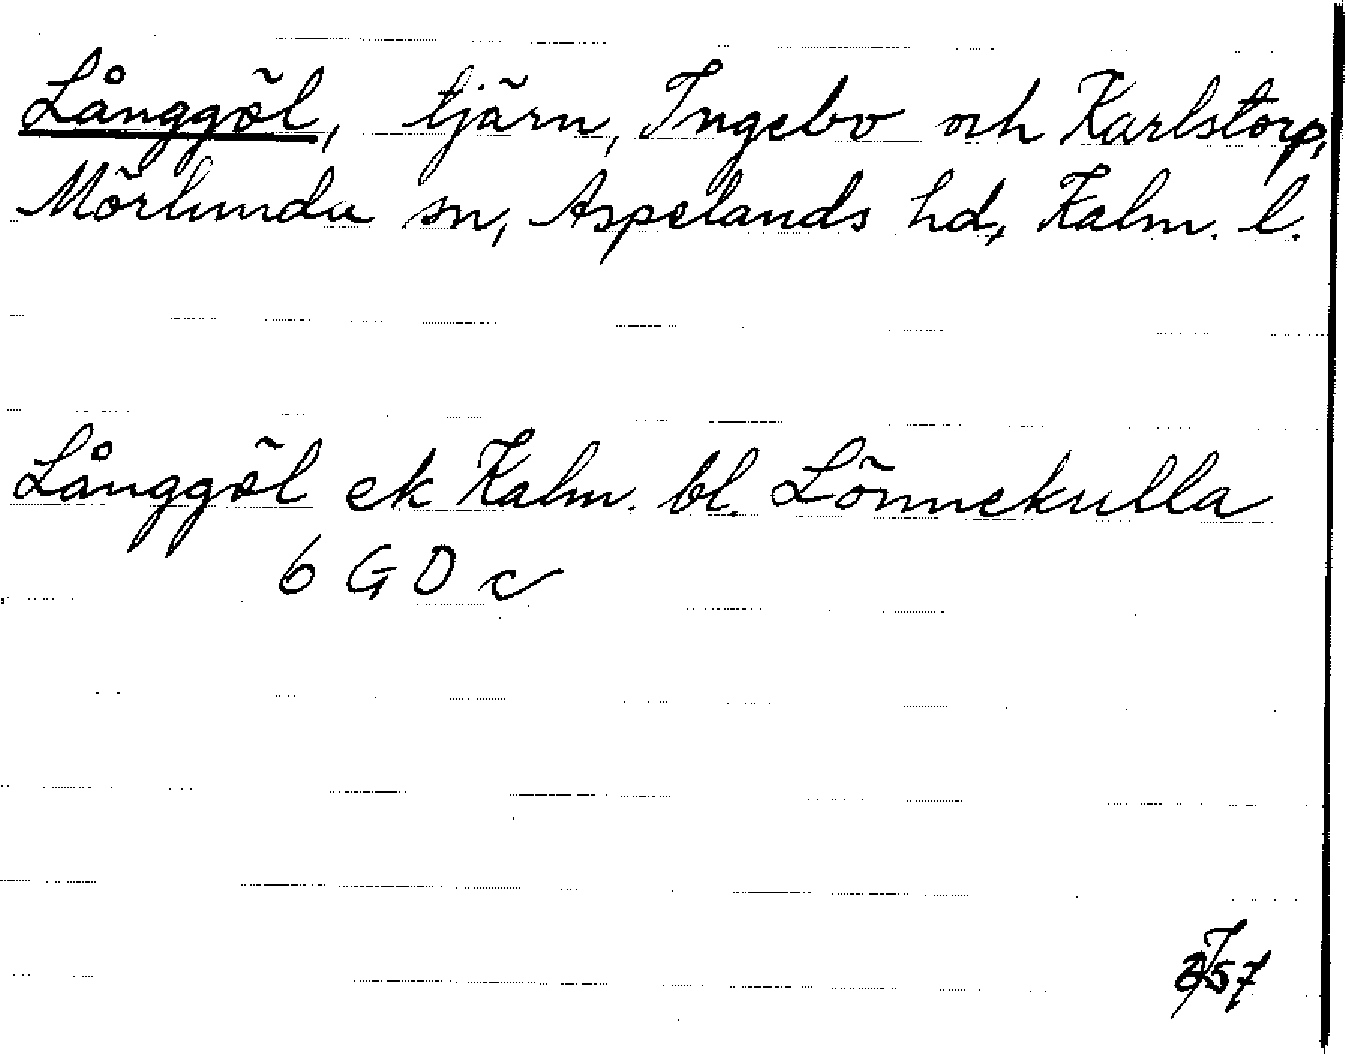 Långgöl, tjärn, Ingebo och Karlstorp,
Mörlunda sn, Aspelands hd, Kalm. l.
Långgöl ek Kalm. bl. Lönnekulla
6 G D c